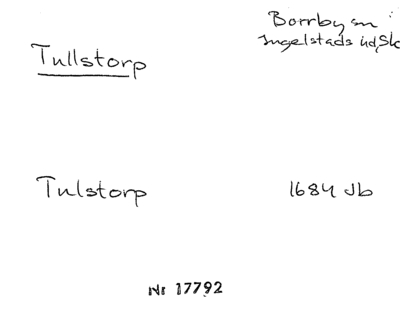 Borrby sn
Tullstorp
Ingelstads hd, Sk
Tulstorp 1684 Jb
Nr 17792